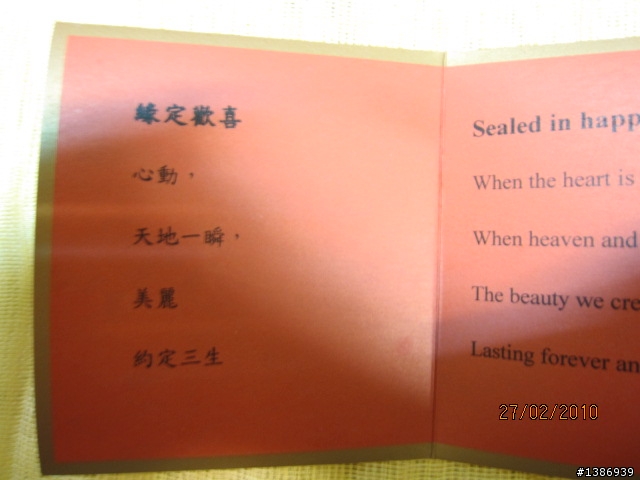 緣定歡喜
心動，
天地一瞬，
美麗
約定三生
Sealed in happ
When the heart is
When heaven and
The beauty we cre
Lasting forever an
27/02/2010
#1386939